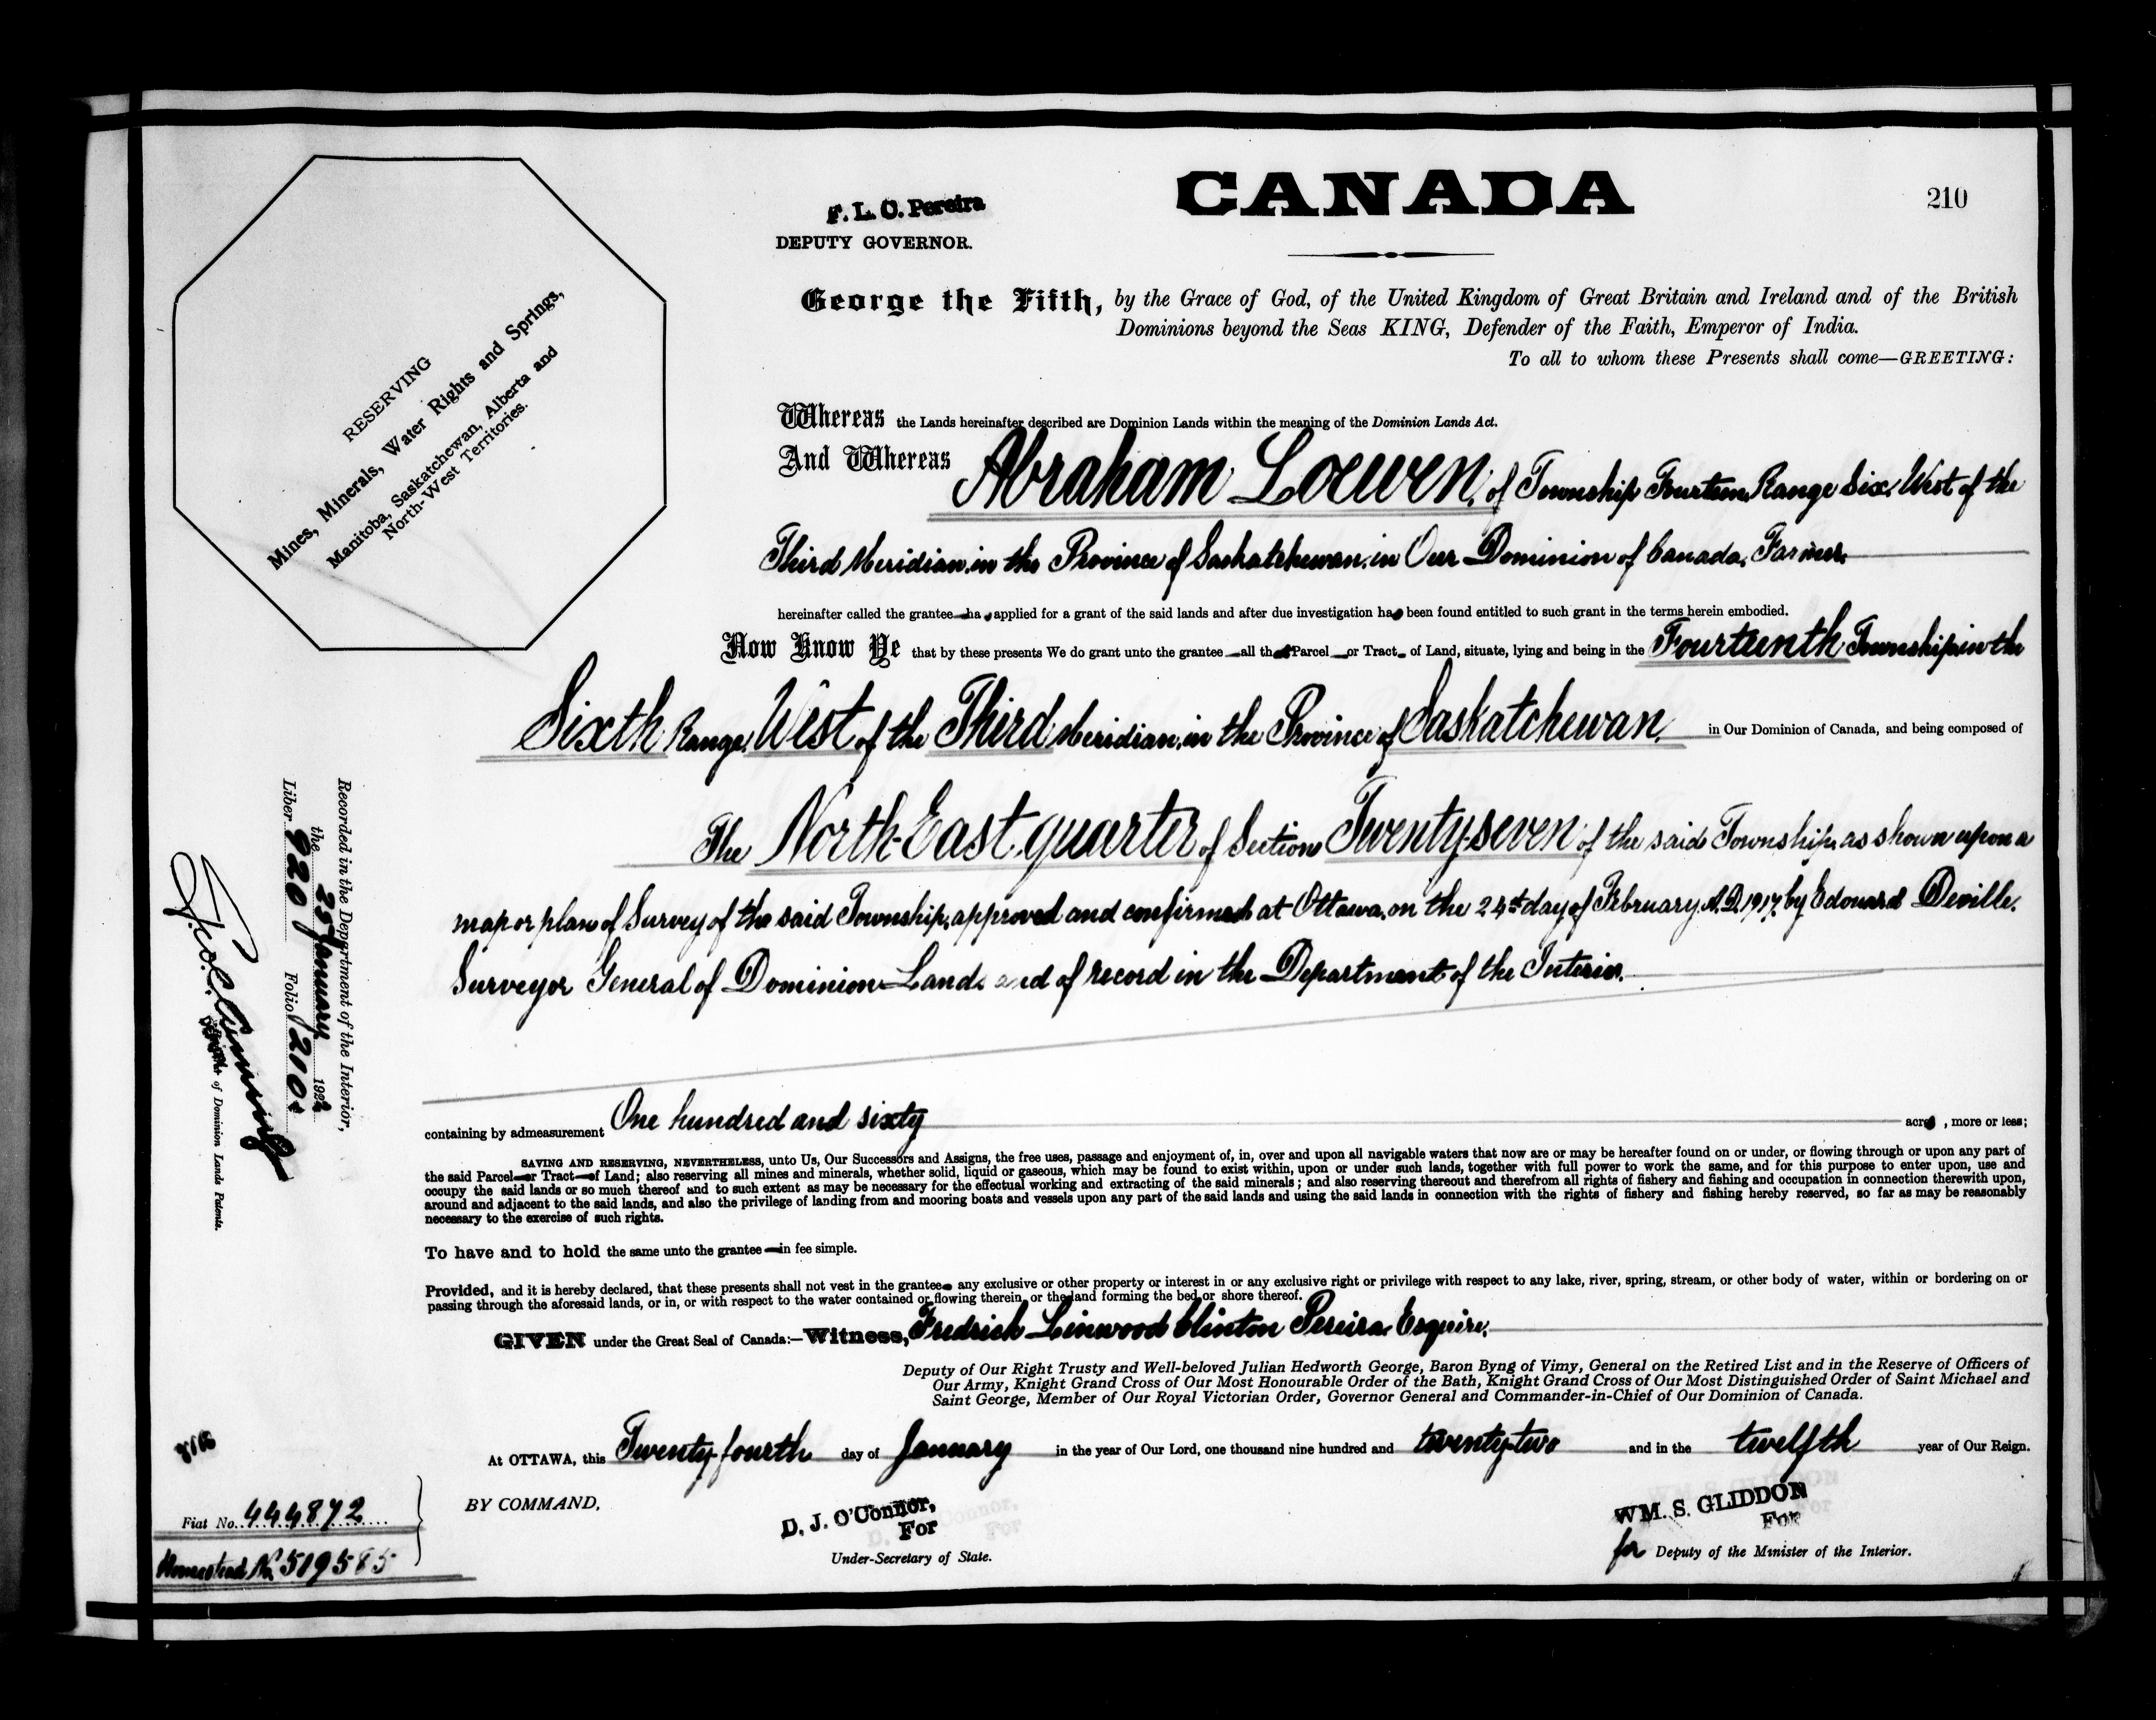 CANADA
210
F. L. C. Pereira
DEPUTY GOVERNOR.
George the Fifth, by the Grace of God, of the United Kingdom of Great Britain and Ireland and of the British
Dominions beyond the Seas KING, Defender of the Faith, Emperor of India.
To all to whom these Presents shall come—GREETING:
RESERVING
Mines, Minerals, Water Rights and Springs,
Manitoba, Saskatchewan, Alberta and
North-West Territories.
Whereas the Lands hereinafter described are Dominion Lands within the meaning of the Dominion Lands Act.
And Whereas Abraham Loewen, of Township Fourteen, Range Six, West of the
Third Meridian, in the Province of Saskatchewan, in Our Dominion of Canada, Farmer,
hereinafter called the grantee—ha applied for a grant of the said lands and after due investigation ha been found entitled to such grant in the terms herein embodied.
Now Know Ye that by these presents We do grant unto the grantee—all that Parcel—or Tract—of Land, situate, lying and being in the Fourteenth Township in the
Sixth Range, West of the Third Meridian, in the Province of Saskatchewan, in Our Dominion of Canada, and being composed of
The North-East quarter of Section Twenty-seven of the said Township, as shown upon a
map or plan of Survey of the said Township, approved and confirmed at Ottawa, on the 24th day of February, A.D. 1917, by Edouard Deville,
Surveyor General of Dominion Lands and of record in the Department of the Interior.
containing by admeasurement One hundred and sixty acres, more or less;
SAVING AND RESERVING, NEVERTHELESS, unto Us, Our Successors and Assigns, the free uses, passage and enjoyment of, in, over and upon all navigable waters that now are or may be hereafter found on or under, or flowing through or upon any part of
the said Parcel—or Tract—of Land; also reserving all mines and minerals, whether solid, liquid or gaseous, which may be found to exist within, upon or under such lands, together with full power to work the same, and for this purpose to enter upon, use and
occupy the said lands or so much thereof and to such extent as may be necessary for the effectual working and extracting of the said minerals; and also reserving thereout and therefrom all rights of fishery and fishing and occupation in connection therewith upon,
around and adjacent to the said lands, and also the privilege of landing from and mooring boats and vessels upon any part of the said lands and using the said lands in connection with the rights of fishery and fishing hereby reserved, so far as may be reasonably
necessary to the exercise of such rights.
To have and to hold the same unto the grantee—in fee simple.
Provided, and it is hereby declared, that these presents shall not vest in the grantee any exclusive or other property or interest in or any exclusive right or privilege with respect to any lake, river, spring, stream, or other body of water, within or bordering on or
passing through the aforesaid lands, or in, or with respect to the water contained or flowing therein, or the land forming the bed or shore thereof.
GIVEN under the Great Seal of Canada:—Witness, Fredrick Linwood Clinton Pereira, Esquire,
Deputy of Our Right Trusty and Well-beloved Julian Hedworth George, Baron Byng of Vimy, General on the Retired List and in the Reserve of Officers of
Our Army, Knight Grand Cross of Our Most Honourable Order of the Bath, Knight Grand Cross of Our Most Distinguished Order of Saint Michael and
Saint George, Member of Our Royal Victorian Order, Governor General and Commander-in-Chief of Our Dominion of Canada.
At OTTAWA, this Twenty-fourth day of January in the year of Our Lord, one thousand nine hundred and twenty-two and in the twelfth year of Our Reign.
BY COMMAND,
D. J. O'Connor,
For
Under-Secretary of State.
WM. S. GLIDDON
For
for Deputy of the Minister of the Interior.
Recorded in the Department of the Interior,
the 25 January 1922
Liber 920 Folio 210
of Dominion Lands Patents.
Fiat No. 444872
Homestead No. 519585